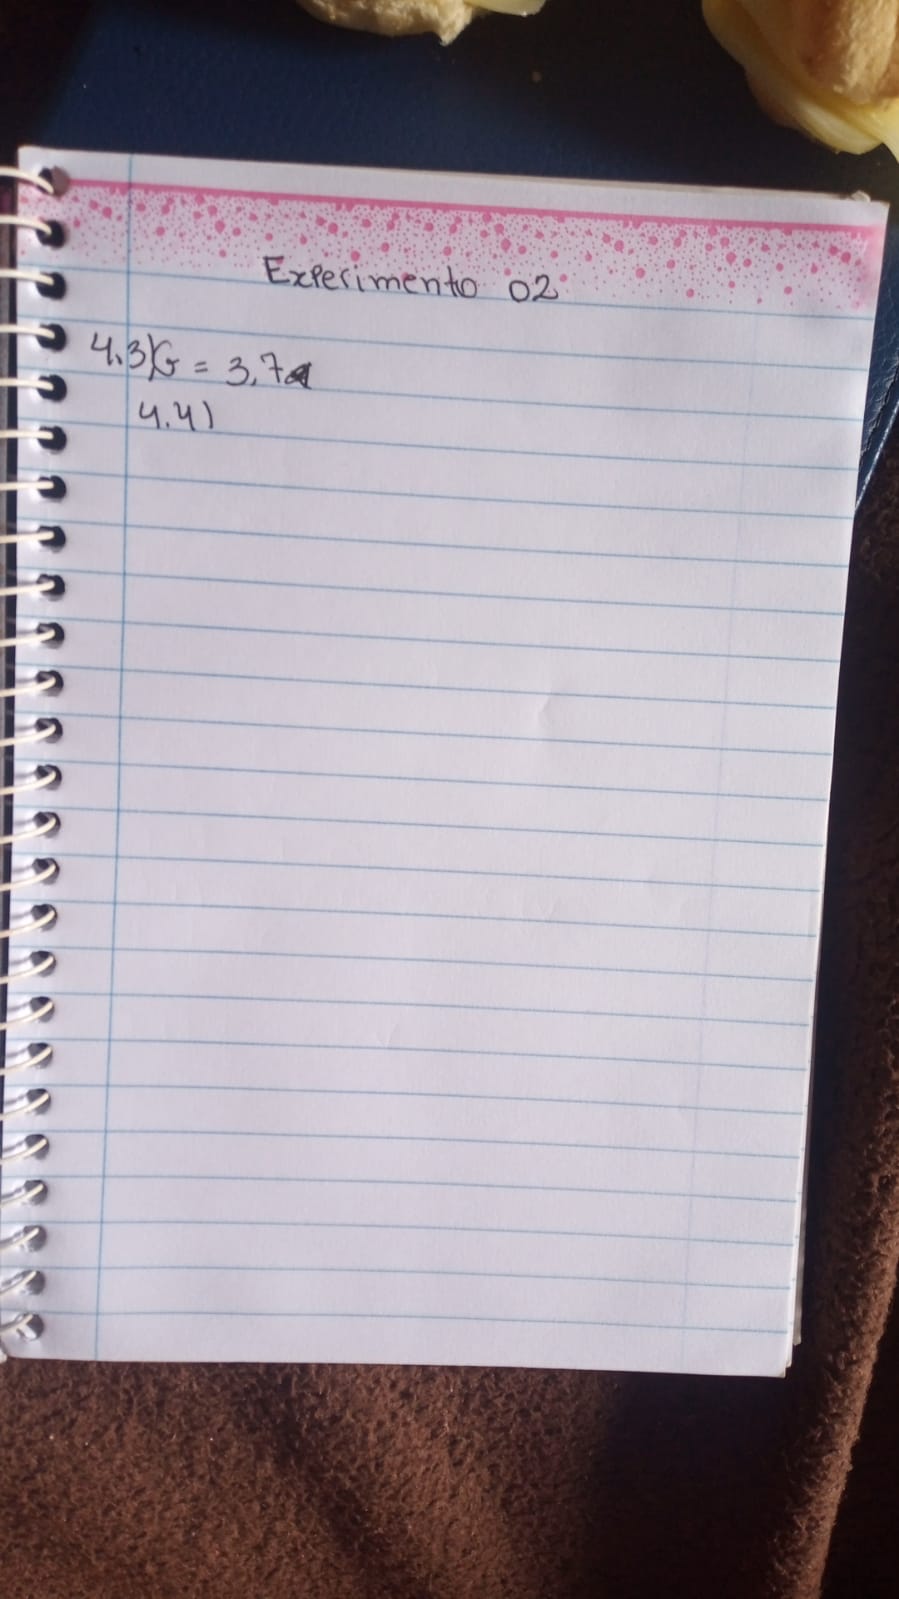 Experimento 02
4.3) G = 3,7
4.4)